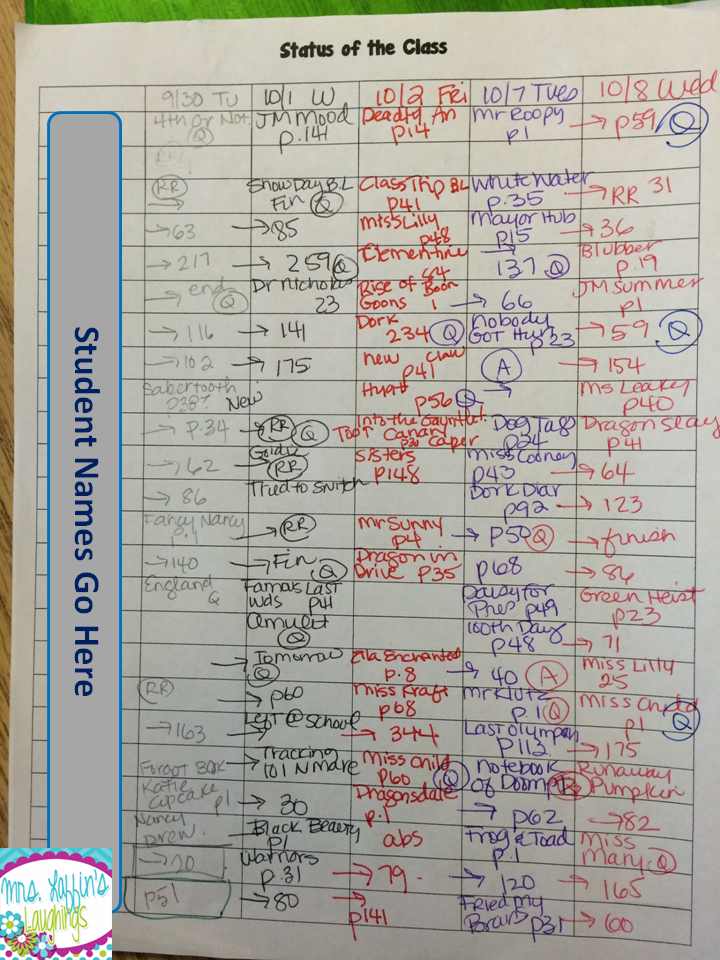 Status of the Class
9/30 Tu 10/1 W 10/2 Fri 10/7 Tues 10/8 Wed
4th or Not Q JM Mood p.141 Deadly An p14 Mr Roopy p1 → p59 Q
RR → Snow Day B.L Fin Q Class Trip BL p41 White Water p.35 → RR 31
→ 63 → 85 Miss Lilly p48 Mayor Hub p15 → 36
→ 217 → 259 Q Clementine 64 → 137 Q Blubber p.19
→ end Q Dr Nicholas 23 Rise of Goons 1 → 66 JM Summer p1
→ 116 → 141 Dork 234 Q Nobody Got Hurt p23 → 59 Q
→ 102 → 175 new claw p41 A → 154
Sabertooth p38? New Hyatt p56 Q → Ms Leaky p40
→ p.34 → RR Q Into the Gauntlet Toot Canary Caper Dog Tags p34 Dragon Slay p41
→ 62 Goldie RR Sisters p148 Miss Cooney p43 → 64
→ 86 Tried to Snitch Dork Diar p92 → 123
Fancy Nancy → RR Mr Sunny p4 → p50 Q → finish
→ 140 → Fin Q Dragon in Drive p35 p68 → 86
England Q Famous Last Wds p41 Daisy for p49 Green Heist p23
Amulet Q 100th Day p48 → 71
→ Tomorrow Q Ella Enchanted p.8 → 40 A Miss Lilly 25
RR → p60 Miss Kraft p68 Mr Klutz p.1 Q Miss Child p1 Q
→ 163 Left @ School → → 344 Last Olympian p113 → 175
Forgot Book → Tracking 101 N mare Miss Child p60 Q Notebook of Doom Runaway Pumpkin
Katie Cupcake p1 → 30 Dragonsdale p.1 → p62 → 82
Nancy Drew → Black Beauty p1 abs Frog & Toad p.1 Miss Mary Q
→ 20 Warriors p.31 → 79 → 120 → 165
p51 → 80 → p141 Fried My Brains p31 → 60
Student Names Go Here
Mrs. Laffin's
Laughings